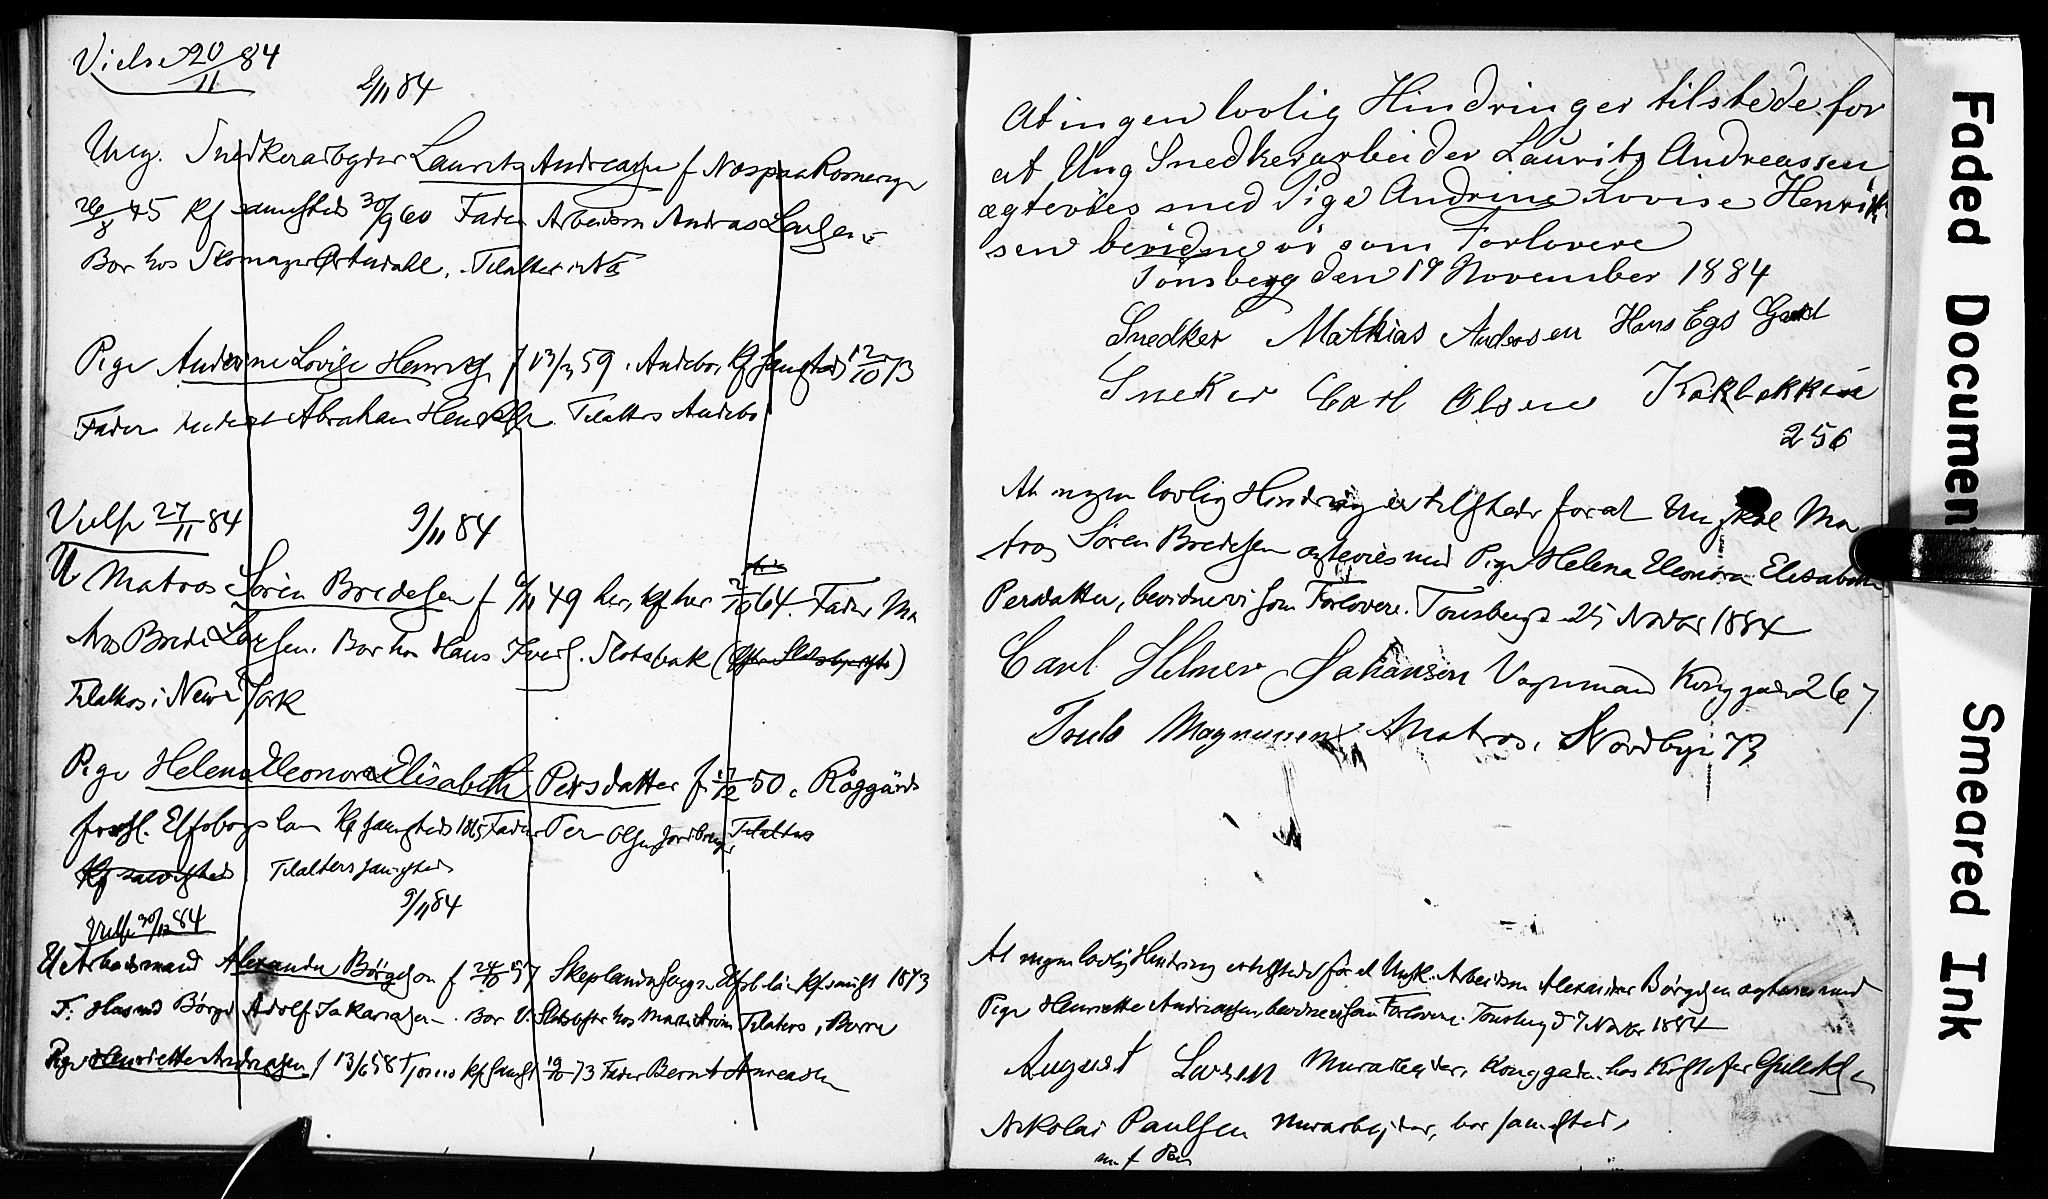 Vielse 20/11 84
9/11 84
Ung. Snedkerarbejder Lauritz Andreasen f
26/8 45 Kf samesteds 30/9 60 Fader Arbeidsm Andreas Larsen
Bor hos
Pige Andrine Lovise Henriks f 13/3 59 i Andebo, Kf samesteds 12/10 73
Fader Abraham Henriks. Tilalters Andebo
Vielse 27/11 84
9/11 84
U Matros Søren Bredesen f 6/11 49 her, kf her 2/10 64. Fader Ma
tros Brede Larsen. Bor hos Hans Ivers. Slotsbak
Tilalters i New York
Pige Helena Eleonora Elisabeth Persdatter f. 17/12 50 i Råggärds
forsl. Elfsborgs lan Kf samesteds 1865 Fader Per Olsen Jordbruger Tilalters
Kf samesteds Tilalters samesteds
9/11 84
Vielse 30/12 84
U Arbeidsmand Alexander Børgeson f 24/8 57 1873
F: Husmd Børge Adolf Sakariasen. Bor
Pige Henriette Andreasen f 13/6 58 kf samst 19/10 73 Fader Bernt Andreasen
At ingen lovlig Hindringer tilstede for
at Ung Snedkerarbeider Lauritz Andreassen
ægtevies med Pige Andrine Lovise Henrik
sen bevidne vi som Forlovere
Tønsberg den 19 November 1884
Snedker Mathias Andersen Hans Egs Gaard
Sneker Carl Olsen Kakbakken
256
At ingen lovlig Hindring er tilstede for at Ungkal Ma
tros Søren Bredesen ægtevies med Pige Helena Eleonora Elisabeth
Persdatter, bevidne vi som Forlovere. Tønsberg 25 Novbr 1884
Carl Helmer Johansen Vognmand Konggaden 267
Magnusen Matros, Nordbyi 73
At ingen lovlig Hindring er tilstede for at Ungk. Arbeidsm Alexander Børgesen ægtevies med
Pige Henriette Andreassen, bevidne vi som Forlovere. Tønsberg d 7 Novbr 1884
August Larsen Murarbejder, Konggaden hos
Nikolai Paulsen Murarbejder, bor samesteds
m. f. Pen
Faded Document
Smeared Ink